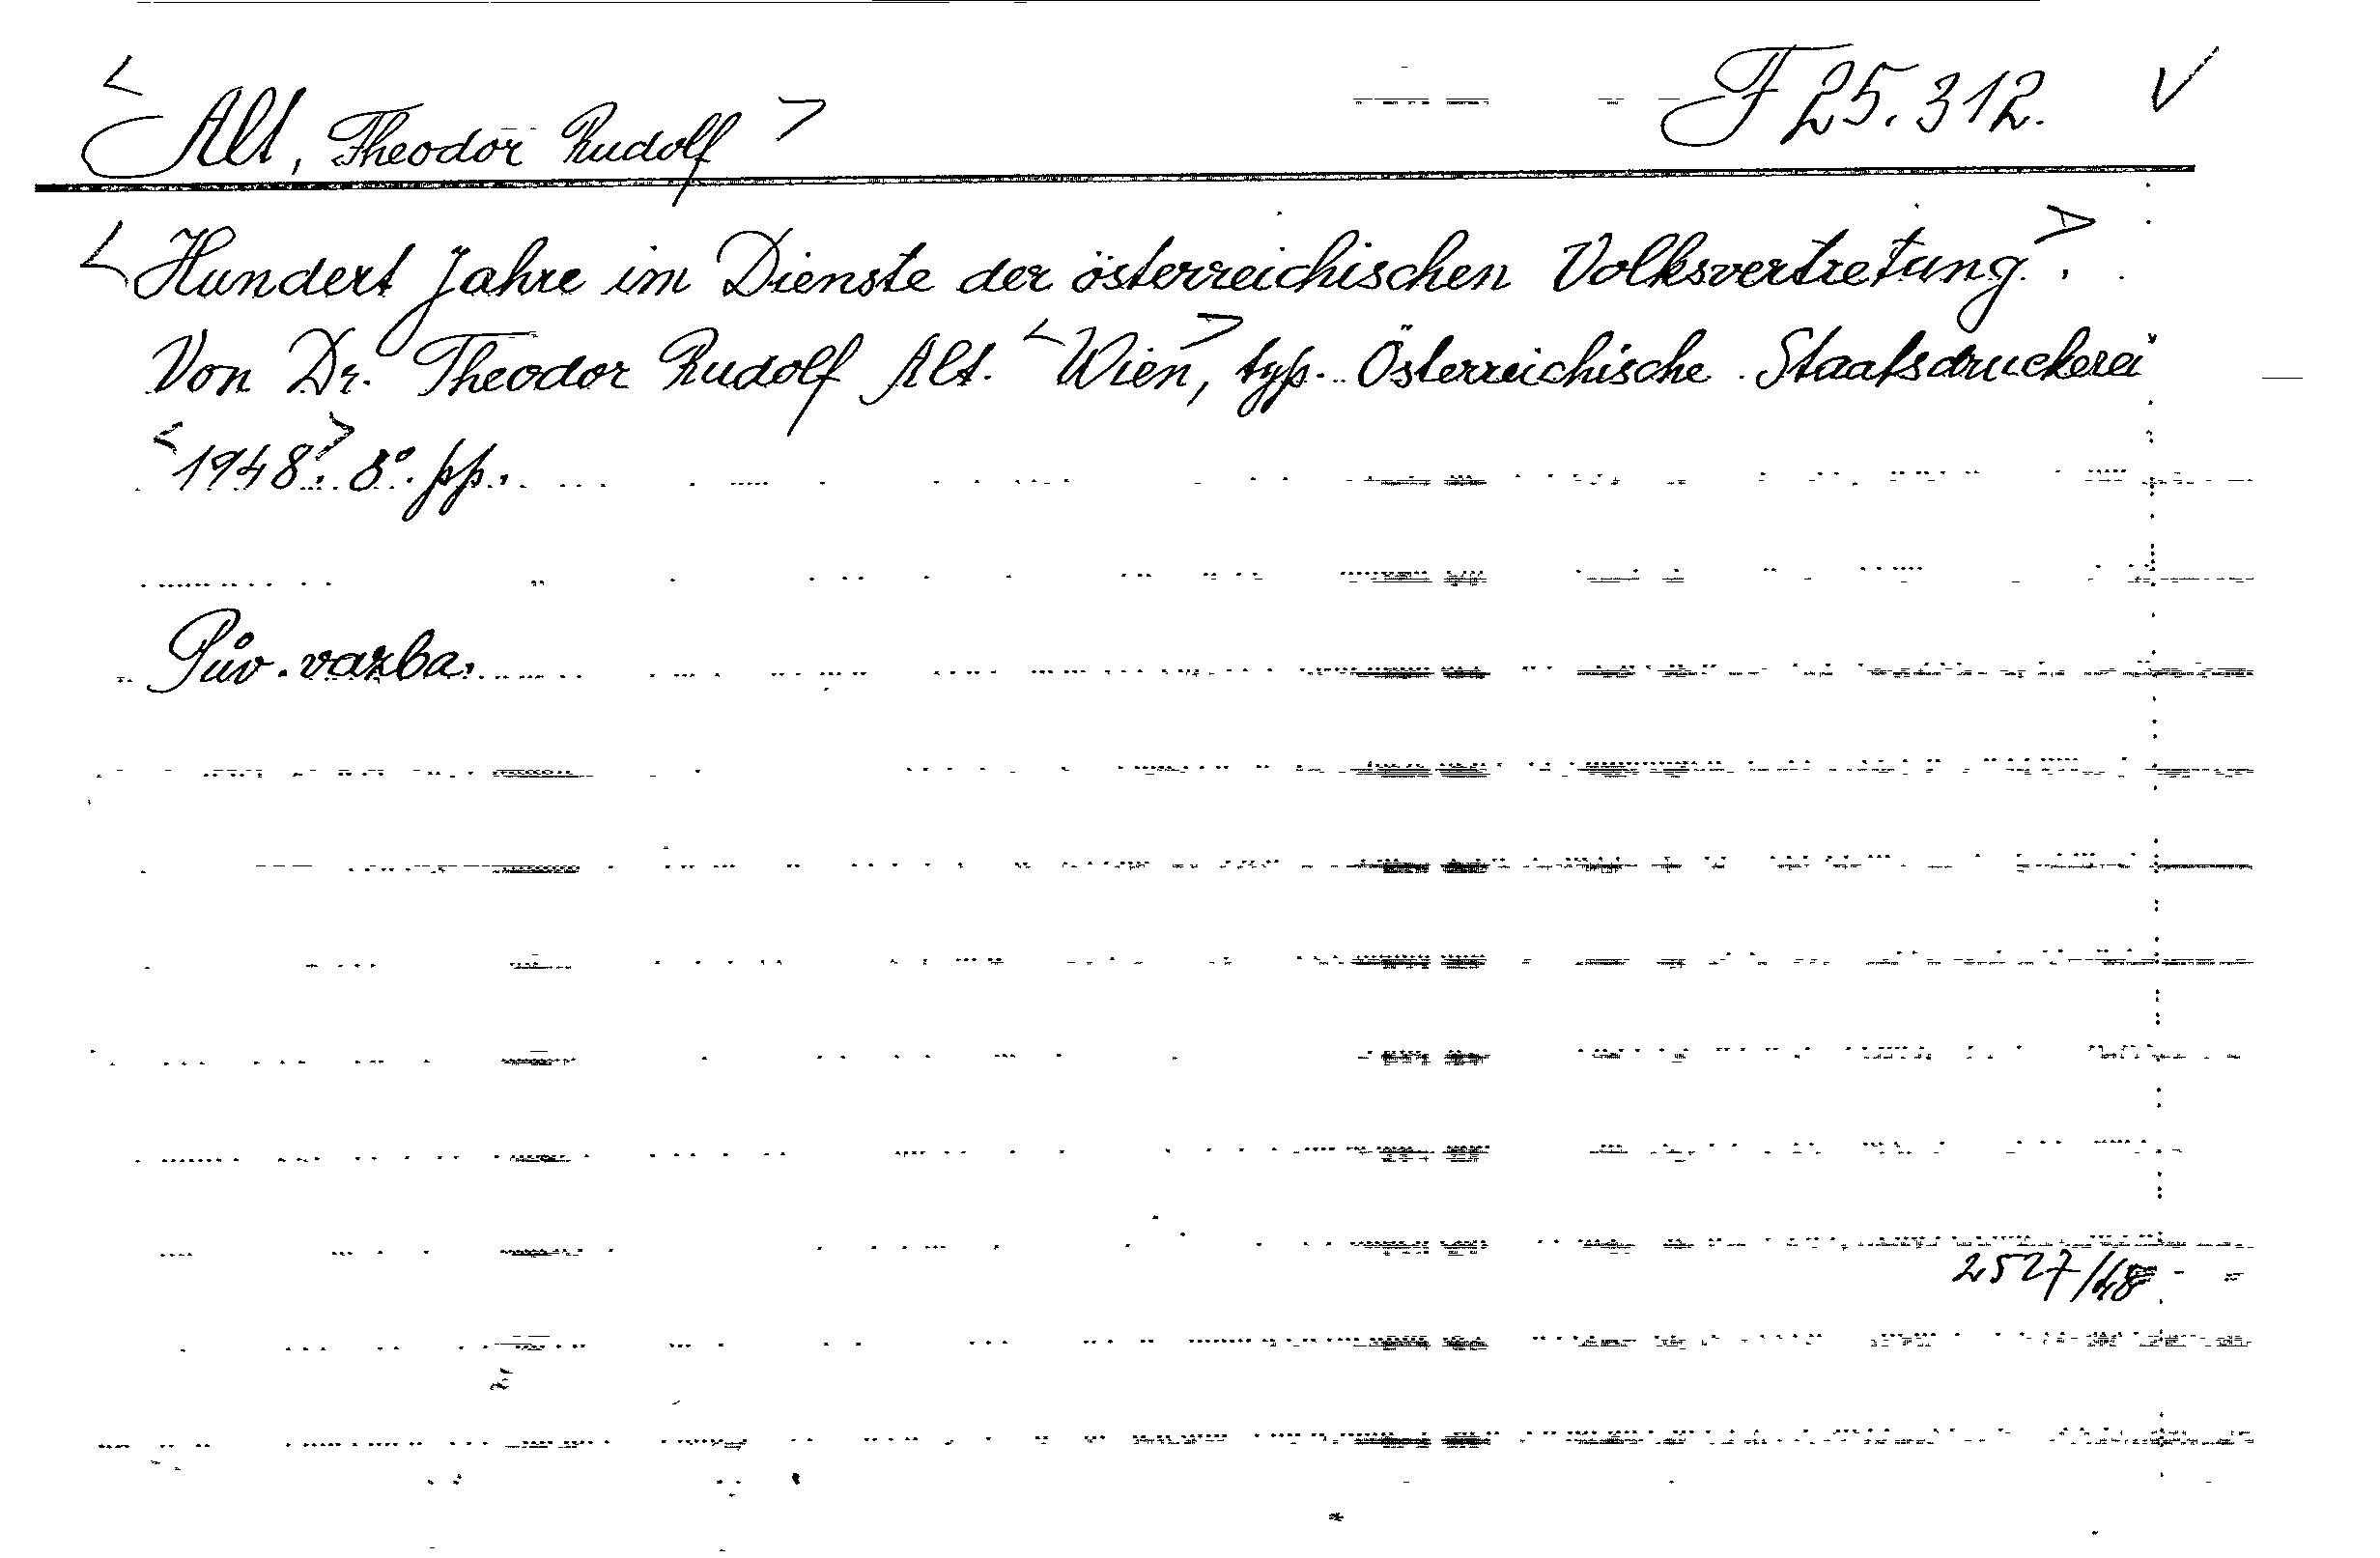 <Alt, Theodor Rudolf> F 25.312. √
<Hundert Jahre im Dienste der österreichischen Volksvertretung>.
Von Dr. Theodor Rudolf Alt. <Wien>, typ. Österreichische Staatsdruckerei
<1948>. 8°. pp.
Pův. vazba.
2527/48